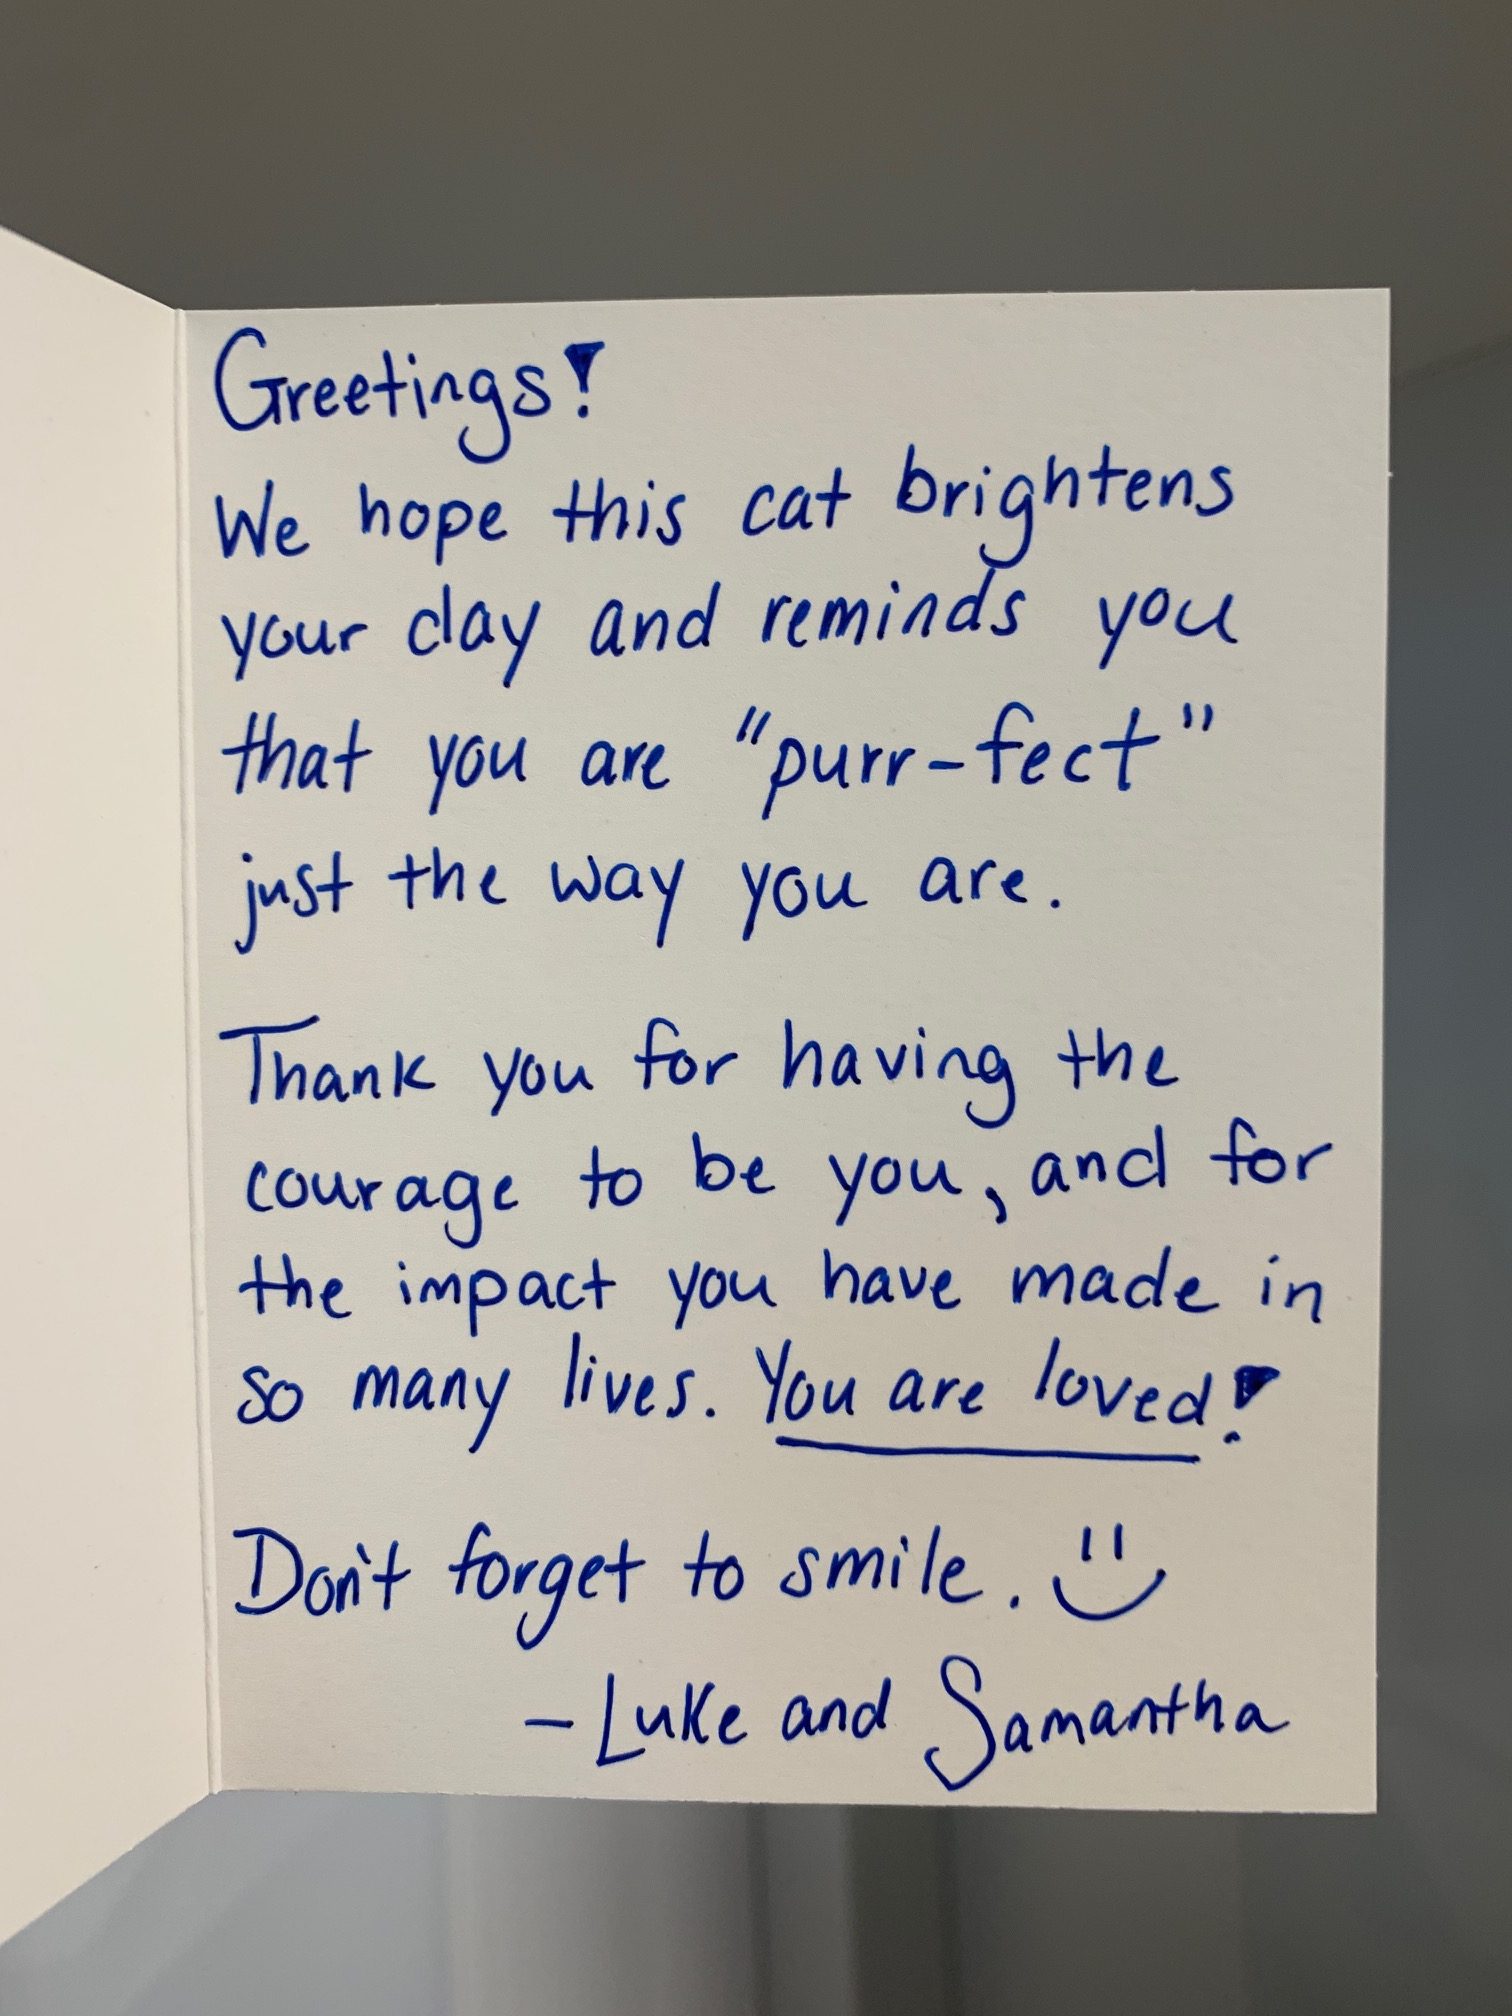 Greetings!
We hope this cat brightens
your day and reminds you
that you are "purr-fect"
just the way you are.
Thank you for having the
courage to be you, and for
the impact you have made in
so many lives. You are loved!
Don't forget to smile. :)
- Luke and Samantha